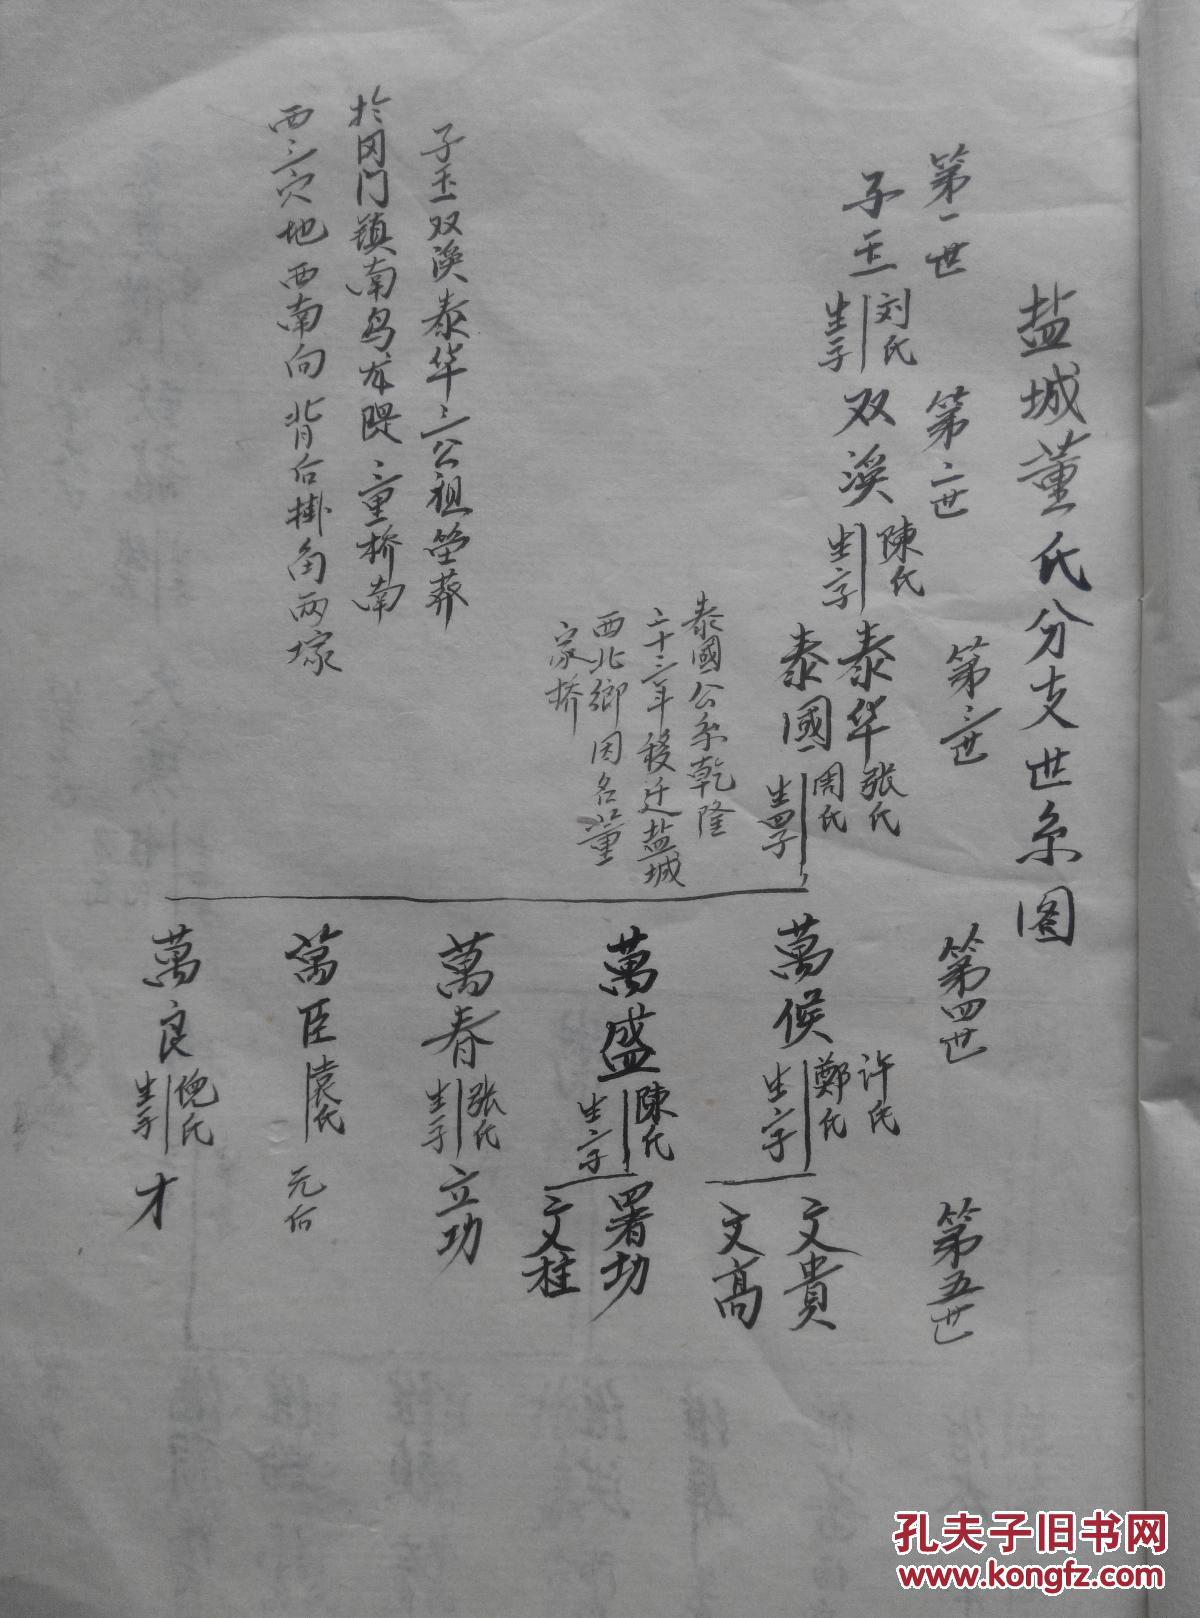 盐城董氏分支世系图
第一世
第二世
第三世
第四世
第五世
子玉
刘氏
生子
双溪
陳氏
生二子
泰华
张氏
泰國
周氏
生四子
泰國公系乾隆
二十三年移迁盐城
西北鄉因名董
家桥
萬候
许氏
鄭氏
生二子
文貴
文高
萬盛
陳氏
生二子
署功
文柱
萬春
张氏
生子
立功
萬臣
袁氏
萬良
倪氏
生子
才
子玉双溪泰华三公祖茔葬
於冈门镇南乌龙隄三董桥南
西三穴地西南向背后掛角两塚
孔夫子旧书网
www.kongfz.com